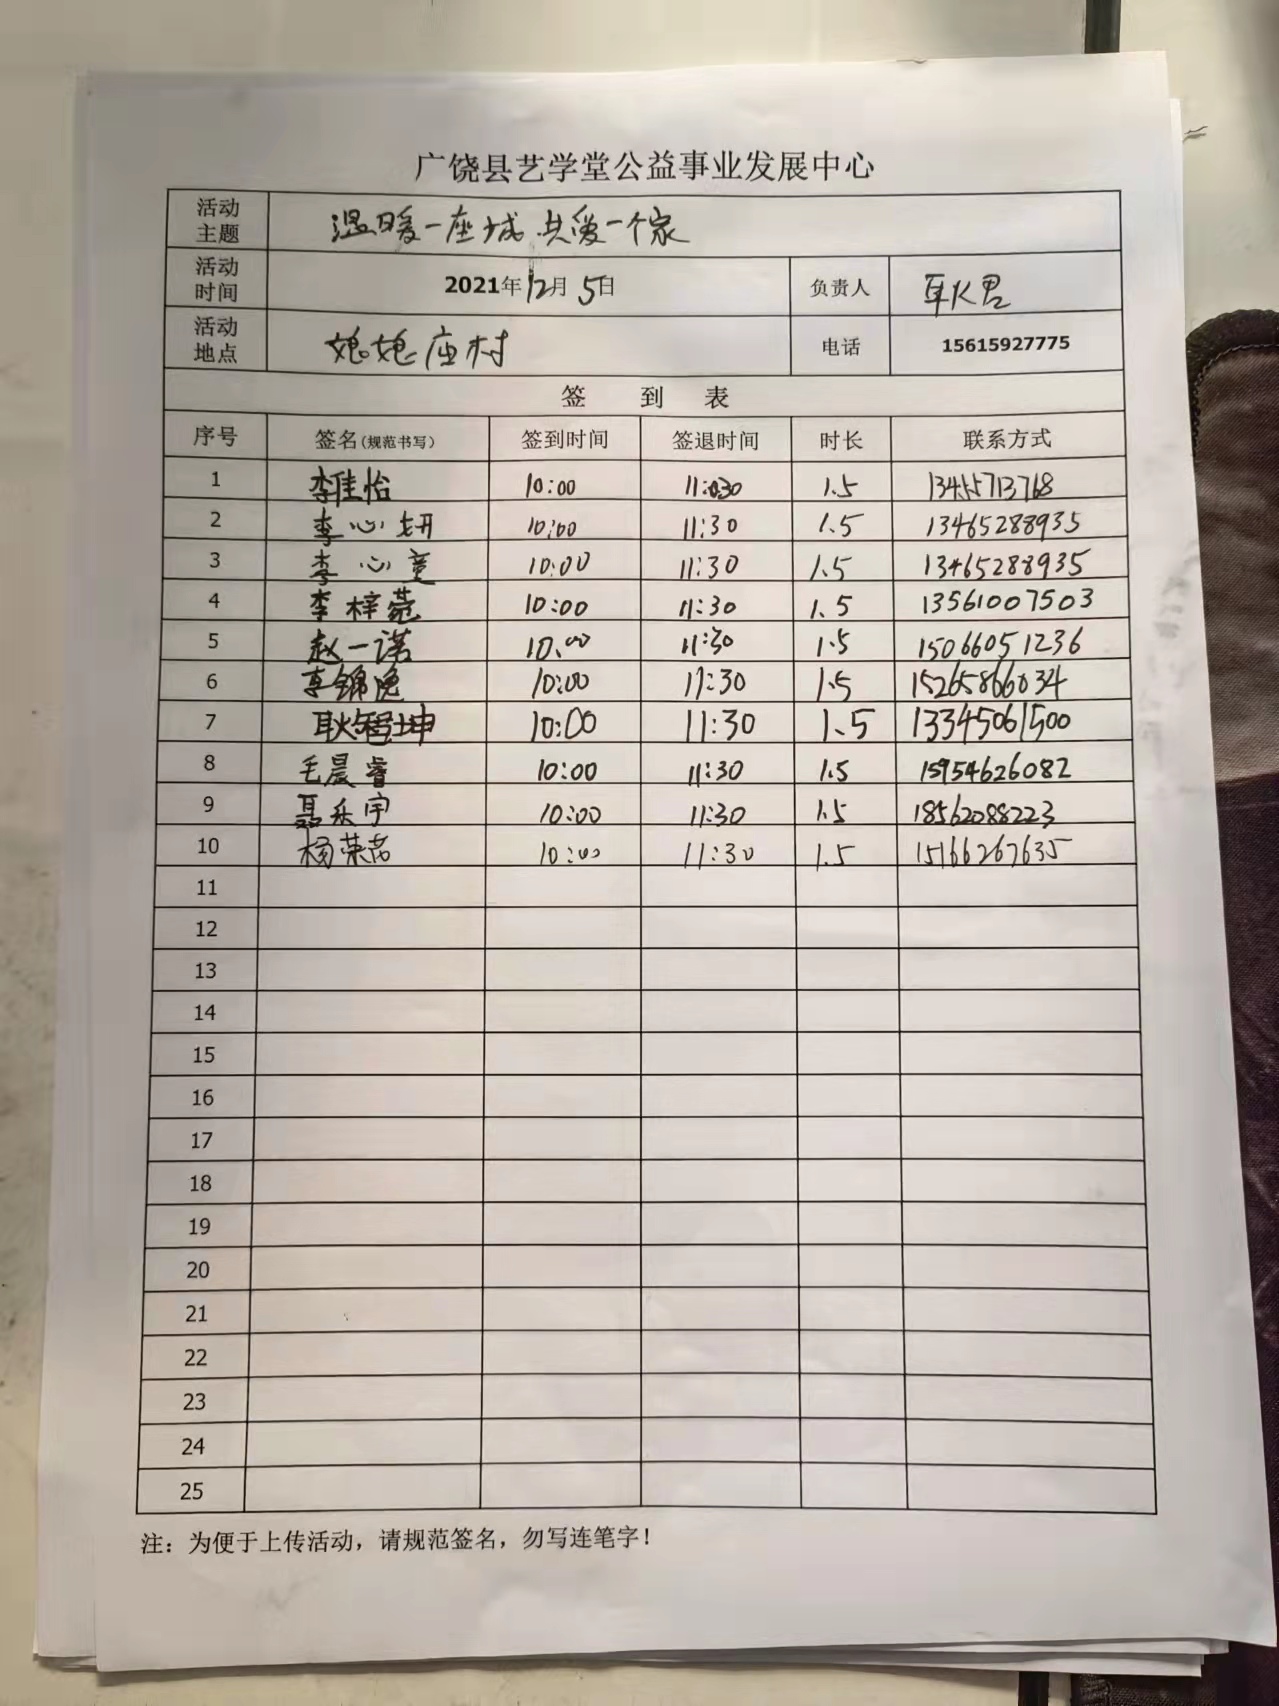 广饶县艺学堂公益事业发展中心
活动主题 温暖一座城 共爱一个家
活动时间 2021年12月5日 负责人
活动地点 娘娘庙村 电话 15615927775
签 到 表
序号 签名(规范书写) 签到时间 签退时间 时长 联系方式
1 李佳怡 10:00 11:30 1.5 13455713768
2 李心妍 10:00 11:30 1.5 13465288935
3 李心童 10:00 11:30 1.5 13465288935
4 李梓菀 10:00 11:30 1.5 13561007503
5 赵一诺 10:00 11:30 1.5 15066051236
6 李锦晚 10:00 11:30 1.5 15265866034
7 耿智坤 10:00 11:30 1.5 13345061500
8 毛晨睿 10:00 11:30 1.5 15954626082
9 聂乐宇 10:00 11:30 1.5 18562088223
10 杨荣茗 10:00 11:30 1.5 15166267635
11
12
13
14
15
16
17
18
19
20
21
22
23
24
25
注：为便于上传活动，请规范签名，勿写连笔字！